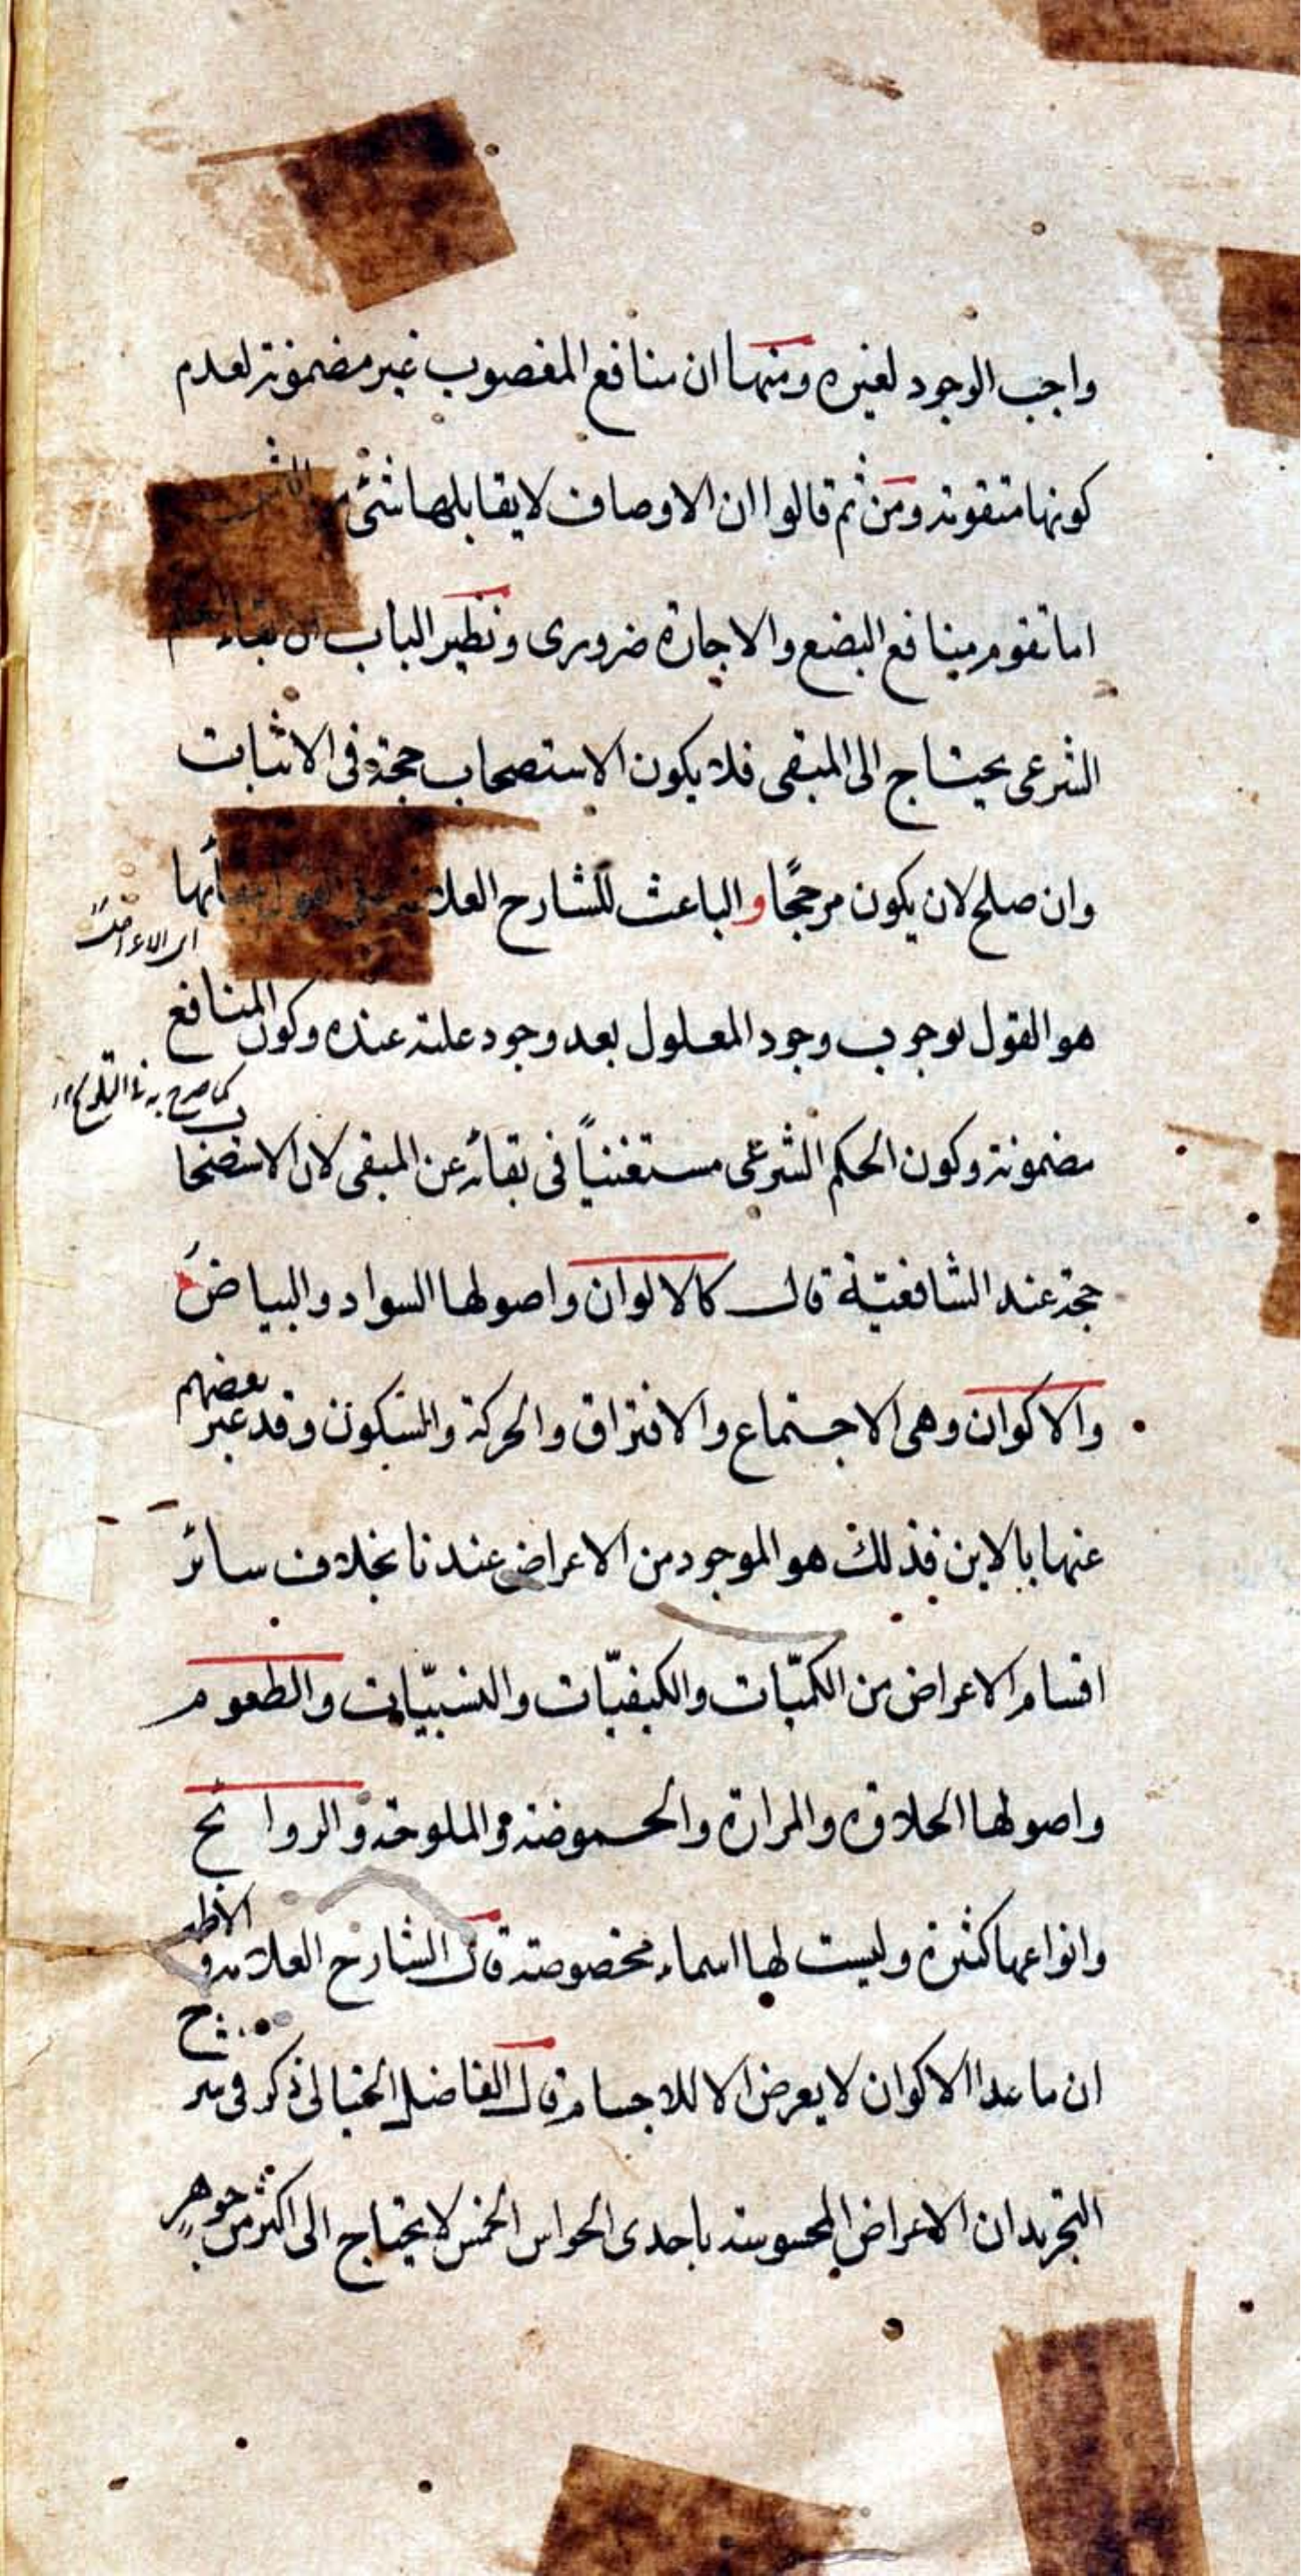 واجب الوجود لغيره ومنها ان منافع المغصوب غير مضمونة لعدم
كونها متقومة ومن ثم قالوا ان الاوصاف لايقابلها شئ من الثمن
اما تقوم منافع البضع والاجارة ضرورى ونظير الباب ان بقاء الحكم
الشرعى يحتاج الى المبقى فلا يكون الاستصحاب حجة فى الاثبات
وان صلح لان يكون مرجحًا و الباعث للشارح العلامة على القول ببقائها
اى الاعراض
هو القول بوجوب وجود المعلول بعد وجود علته عنده وكون المنافع
كما صرح به فى التلويح
مضمونة وكون الحكم الشرعى مستغنياً فى بقائه عن المبقى لان الاستصحاب
حجة عند الشافعيّة قال كالالوان واصولها السواد والبياض
والاكوان وهى الاجتماع والافتراق والحركة والسكون وقد عبر بعضهم
عنها بالاين فذلك هو الموجود من الاعراض عندنا بخلاف سائر
اقسام الاعراض من الكميّات والكيفيّات والنسبيّات والطعوم
واصولها الحلاوة والمرارة والحموضة والملوحة والروائح
وانواعها كثيرة وليست لها اسماء مخصوصة قال الشارح العلامة والاظهر
ان ما عدا الاكوان لا يعرض الا للاجسام قال الفاضل الخيالى ذكر فى شرح
التجريد ان الاعراض المحسوسة باحدى الحواس الخمس لا يحتاج الى اكثر من جوهرٍ